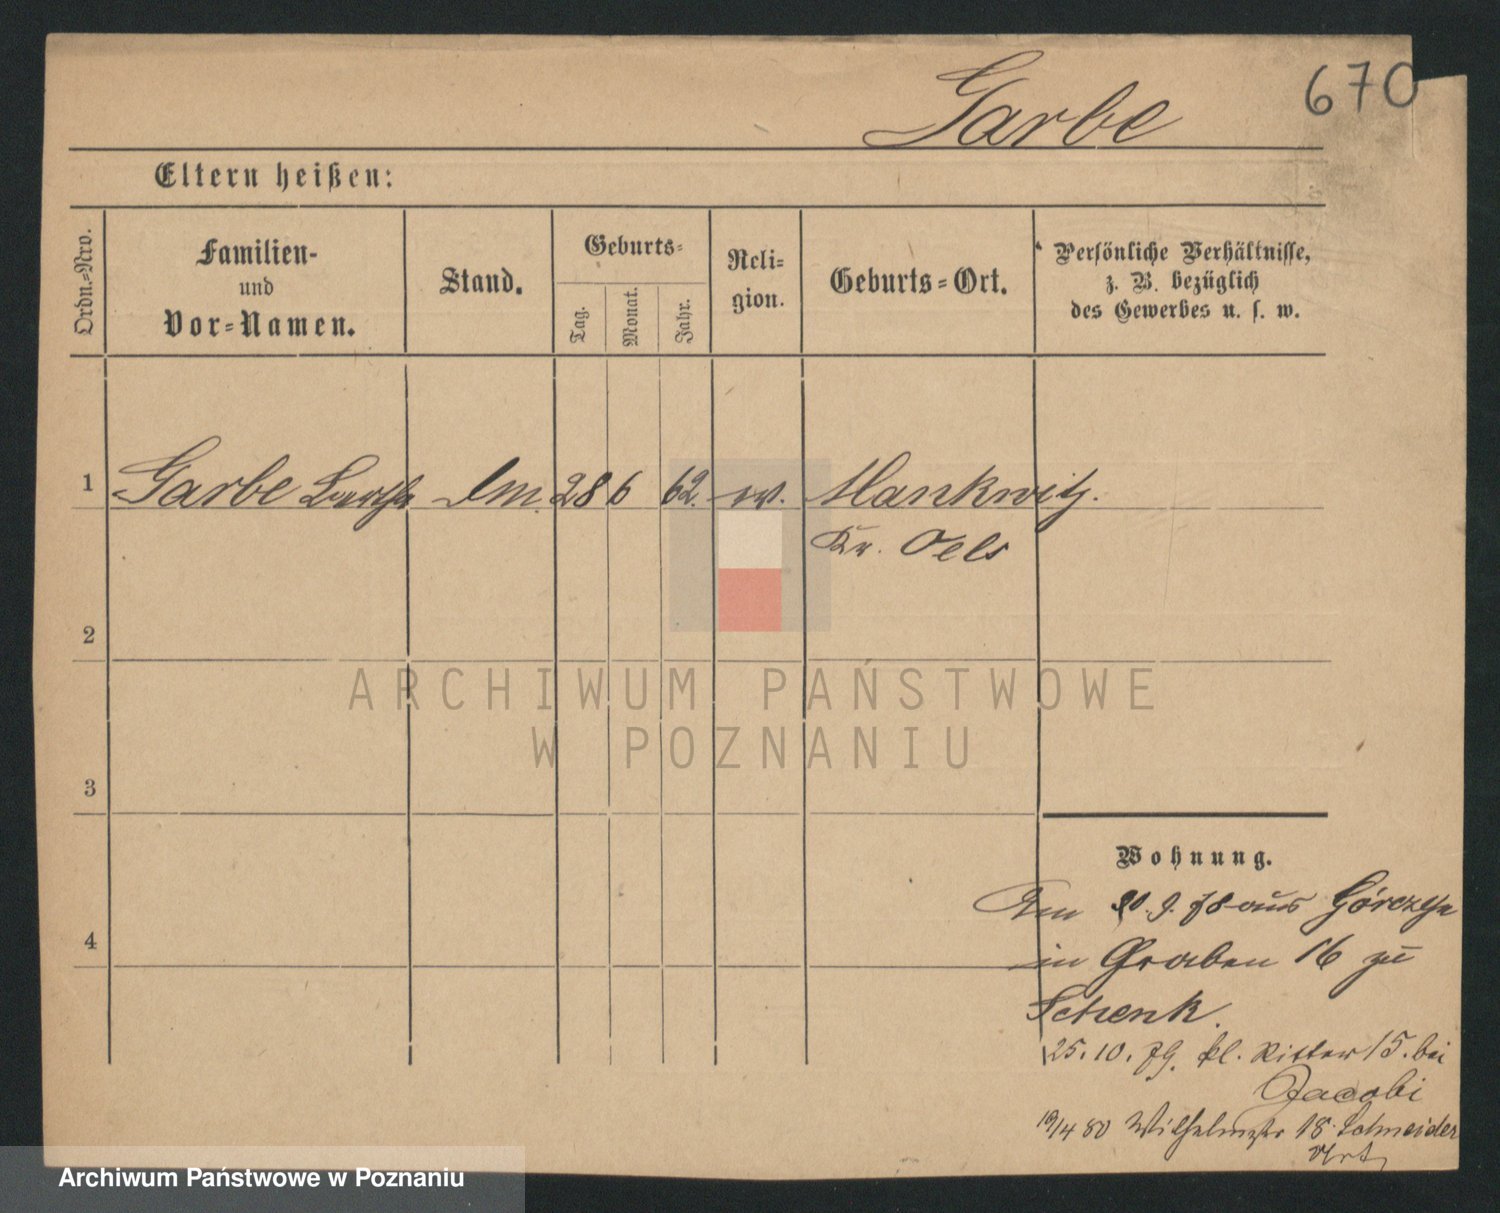 670
Garbe
Eltern heißen:
Ordn.-Nro.
Familien-
und
Vor-Namen.
Stand.
Geburts-
Tag.
Monat.
Jahr.
Reli-
gion.
Geburts-Ort.
Persönliche Verhältnisse,
z. B. bezüglich
des Gewerbes u. s. w.
1 Garbe Bertha Dm. 28 6 62. ev. Mankwitz.
Kr. Oels
2
3
4
ARCHIWUM PAŃSTWOWE
W POZNANIU
Wohnung.
Am 20.9.78 aus Górczyn
in Graben 16 zu
Schenk.
25.10.79. kl. Ritter 15. bei
Jacobi
19/4 80 Wilhelmstr 18. Schneider
Archiwum Państwowe w Poznaniu